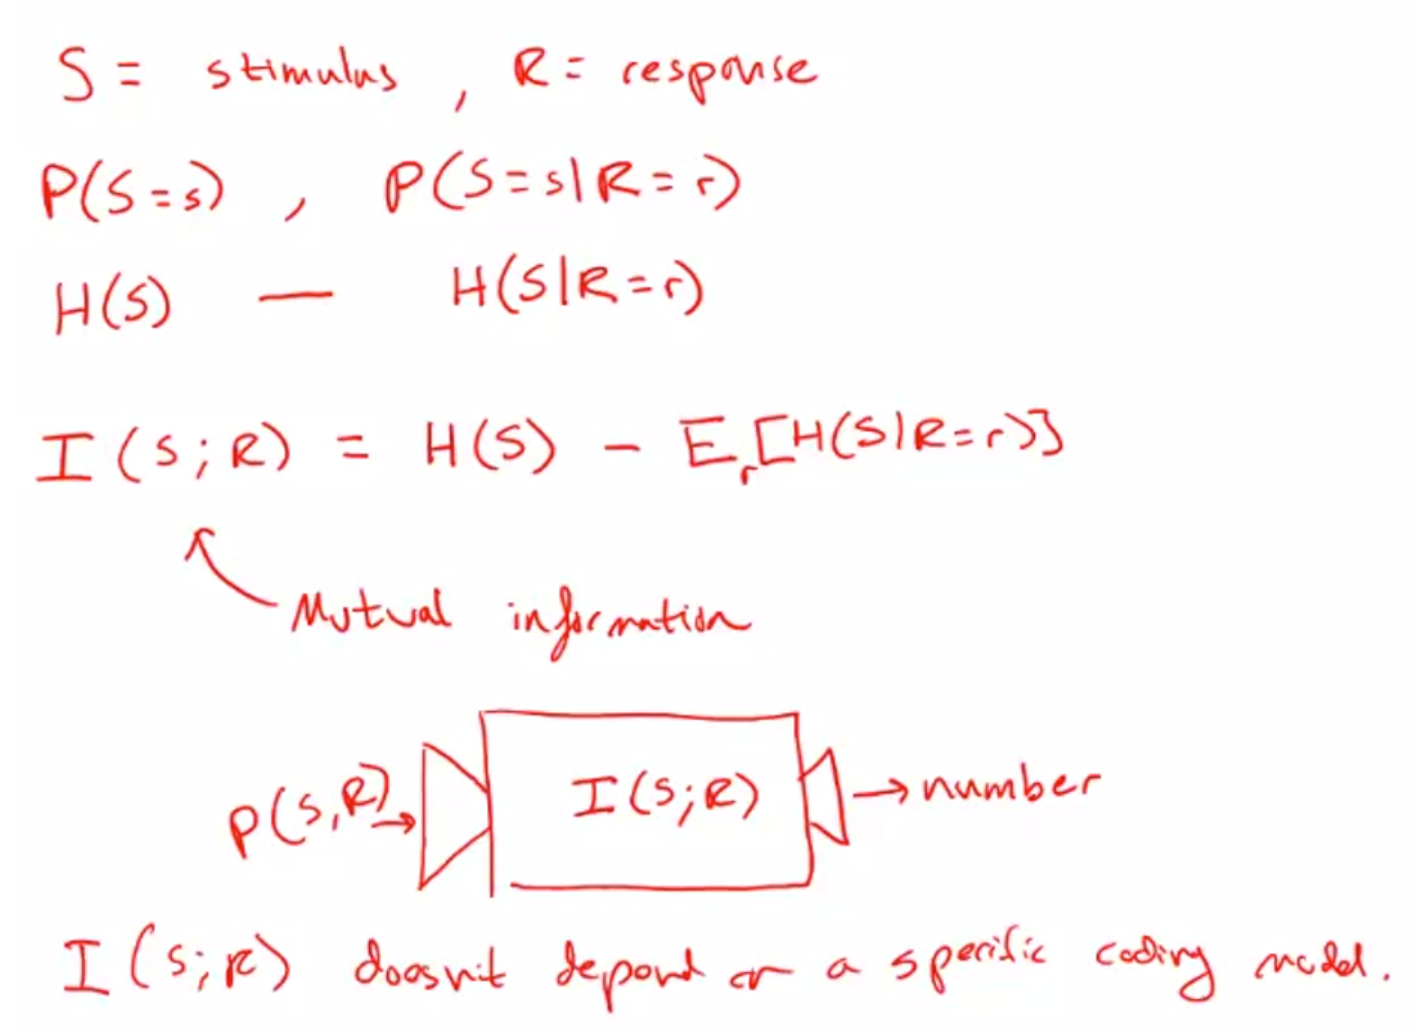 S = stimulus , R = response
P(S=s) , P(S=s|R=r)
H(S) — H(S|R=r)
I(S;R) = H(S) - E_r[H(S|R=r)]
Mutual information
P(S,R) → I(S;R) → number
I(S;R) doesn't depend on a specific coding model.